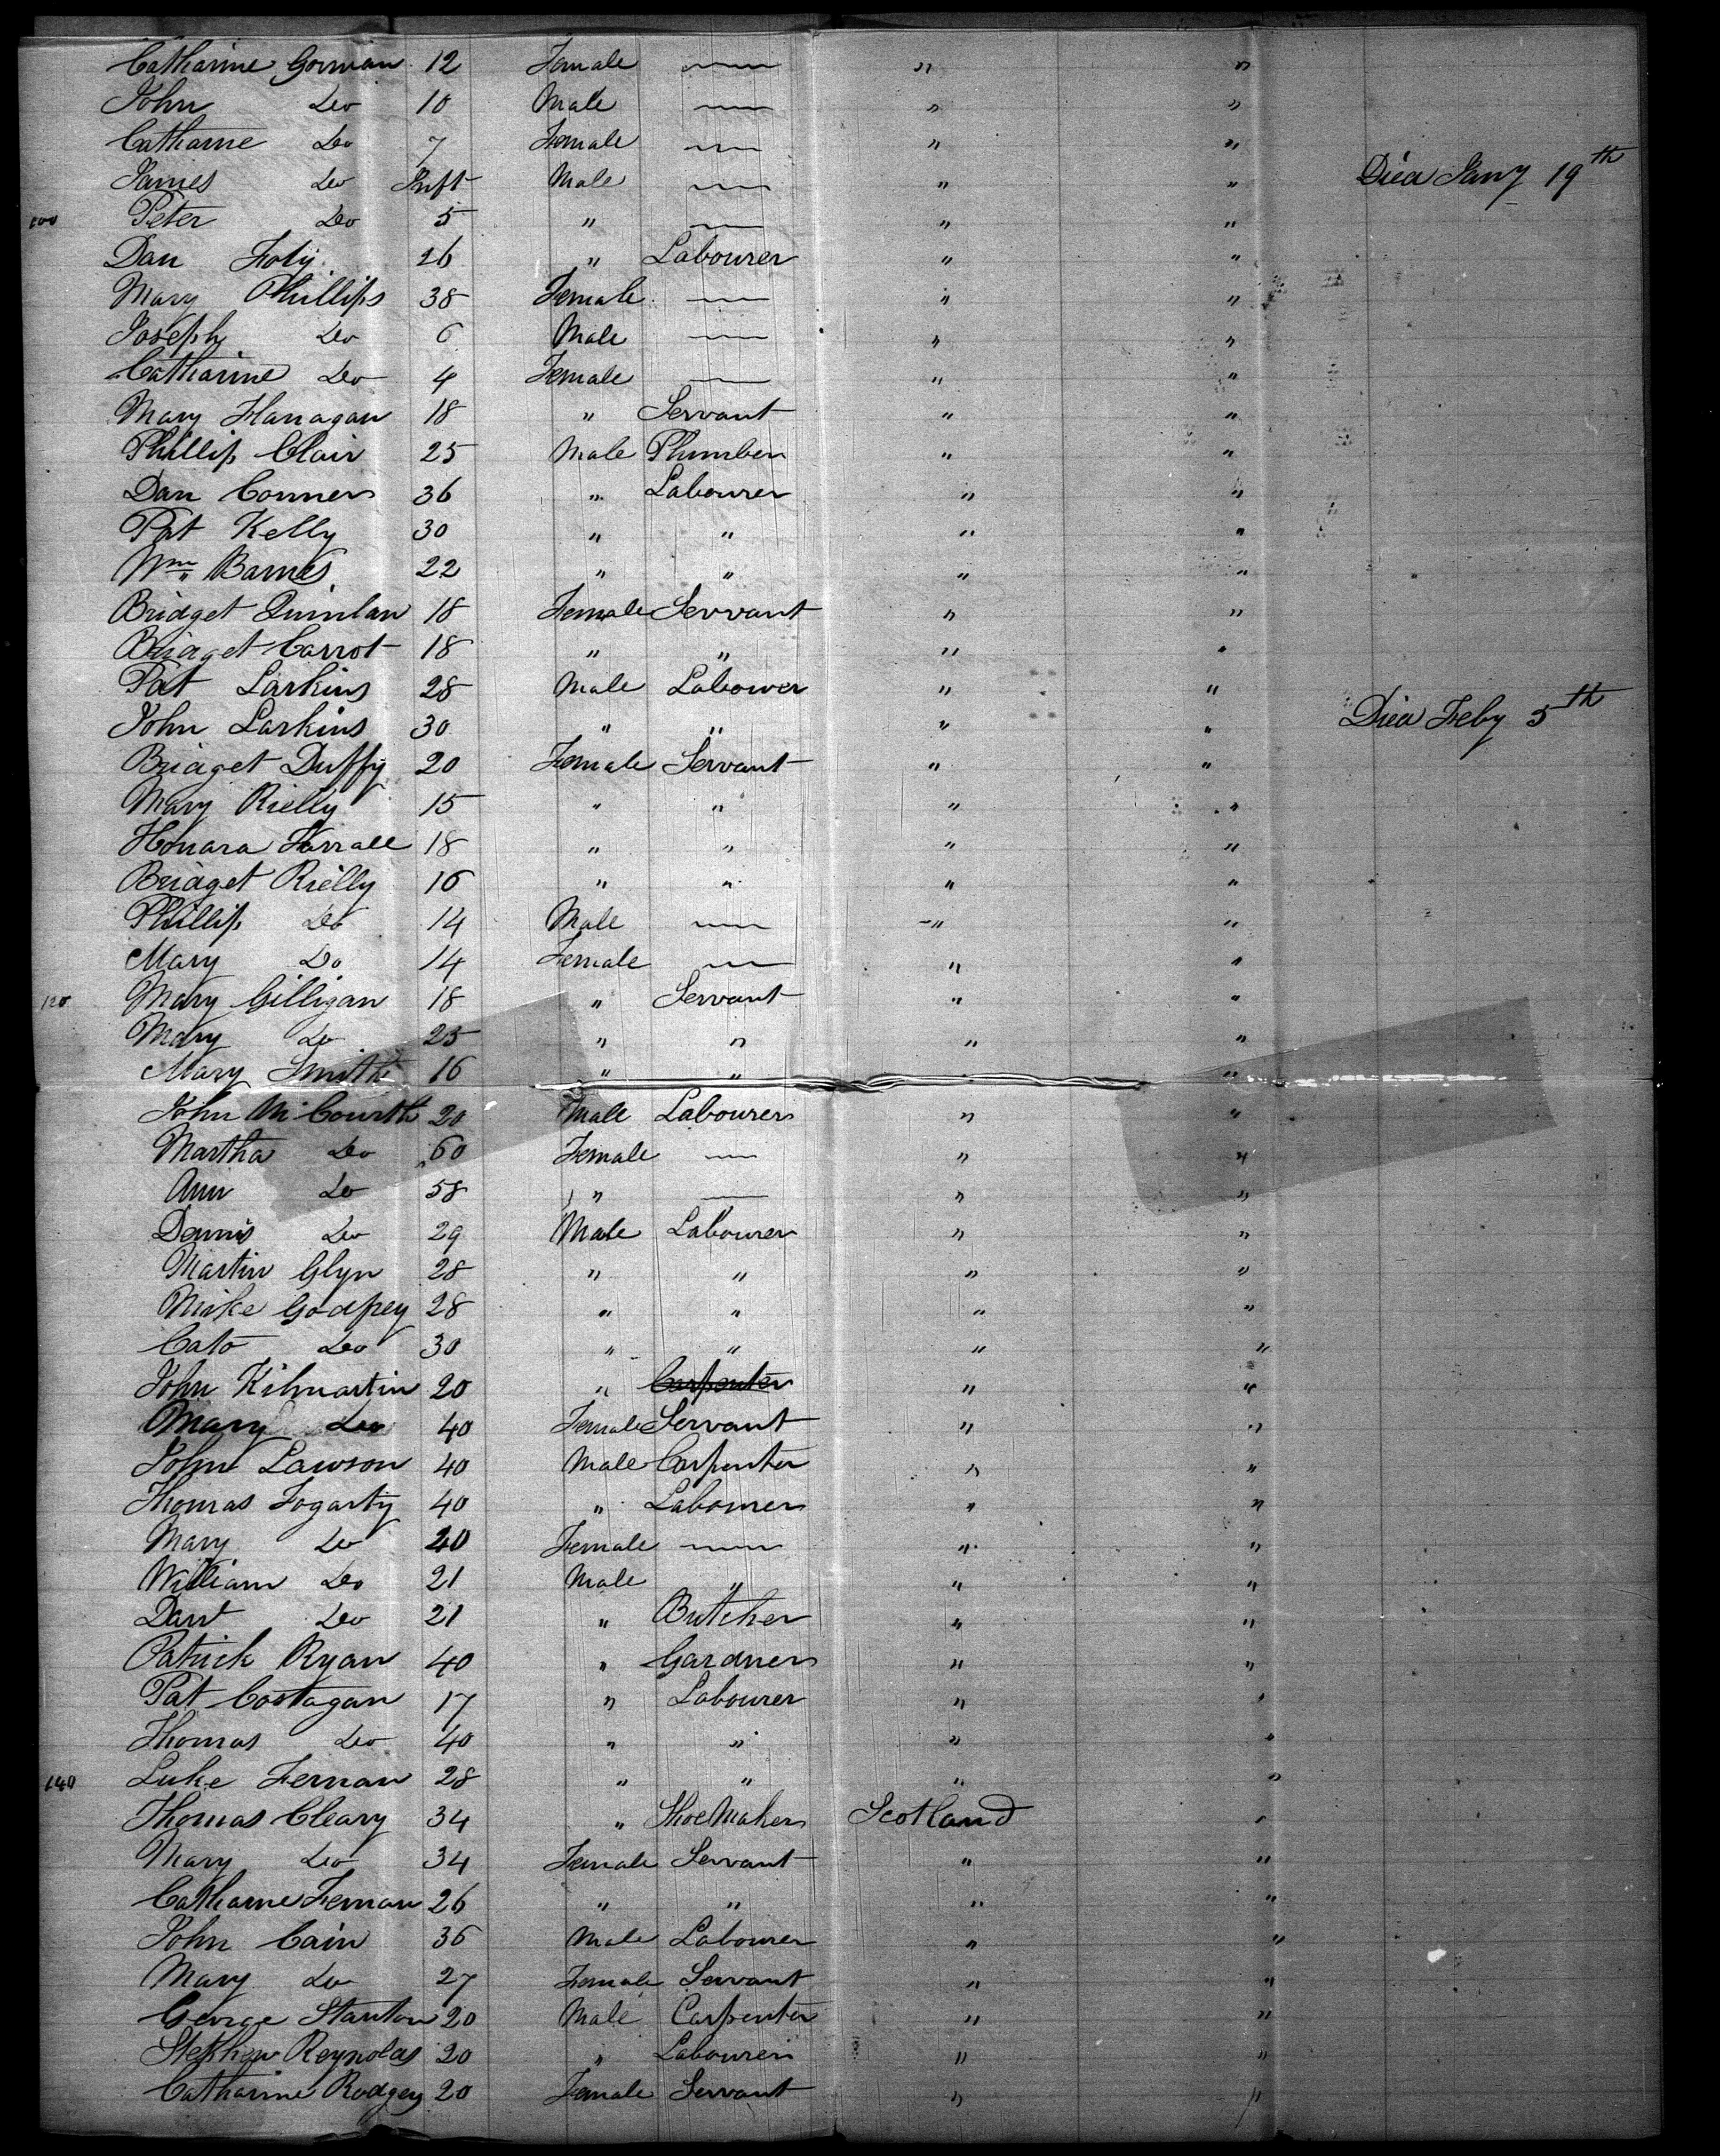 Catharine Gorman 12 Female " "
John Do 10 Male " "
Catharine Do 7 Female " "
James Do Inft Male " " Died Jany 19th
100 Peter Do 5 " " "
Dan Foly 26 " Labourer " "
Mary Phillips 38 Female " "
Joseph Do 6 Male " "
Catharine Do 4 Female " "
Mary Flanagan 18 " Servant " "
Phillip Clair 25 Male Plumber " "
Dan Conners 36 " Labourer " "
Pat Kelly 30 " " " "
Wm Barnes 22 " " " "
Bridget Quinlan 18 Female Servant " "
Bridget Carrot 18 " " " "
Pat Larkins 28 Male Labourer " "
John Larkins 30 " " " " Died Feby 5th
Bridget Duffy 20 Female Servant " "
Mary Rielly 15 " " " "
Honara Farrall 18 " " " "
Bridget Rielly 16 " " " "
Phillip Do 14 Male " "
Mary Do 14 Female " "
120 Mary Gilligan 18 " Servant " "
Mary Do 25 " " " "
Mary Smith 16 " " " "
John McCourth 20 Male Labourer " "
Martha Do 60 Female " "
Ann Do 58 " " "
Dennis Do 29 Male Labourer " "
Martin Glyn 28 " " " "
Mike Godfrey 28 " " " "
Cato Do 30 " " " "
John Kilmartin 20 " Carpenter " "
Mary Do 40 Female Servant " "
John Lawson 40 Male Carpenter " "
Thomas Fogarty 40 " Labourer " "
Mary Do 20 Female " "
William Do 21 Male " " "
Do 21 " Butcher " "
Patrick Ryan 40 " Gardner " "
Pat Costagan 17 " Labourer " "
Thomas Do 40 " " " "
140 Luke Fernan 28 " " " "
Thomas Cleary 34 " Shoe Maker Scotland "
Mary Do 34 Female Servant " "
Catharne Fernan 26 " " " "
John Cain 36 Male Labourer " "
Mary Do 27 Female Servant " "
George Stanton 20 Male Carpenter " "
Stephen Reynolds 20 " Labourer " "
Catharine Rodgers 20 Female Servant " "